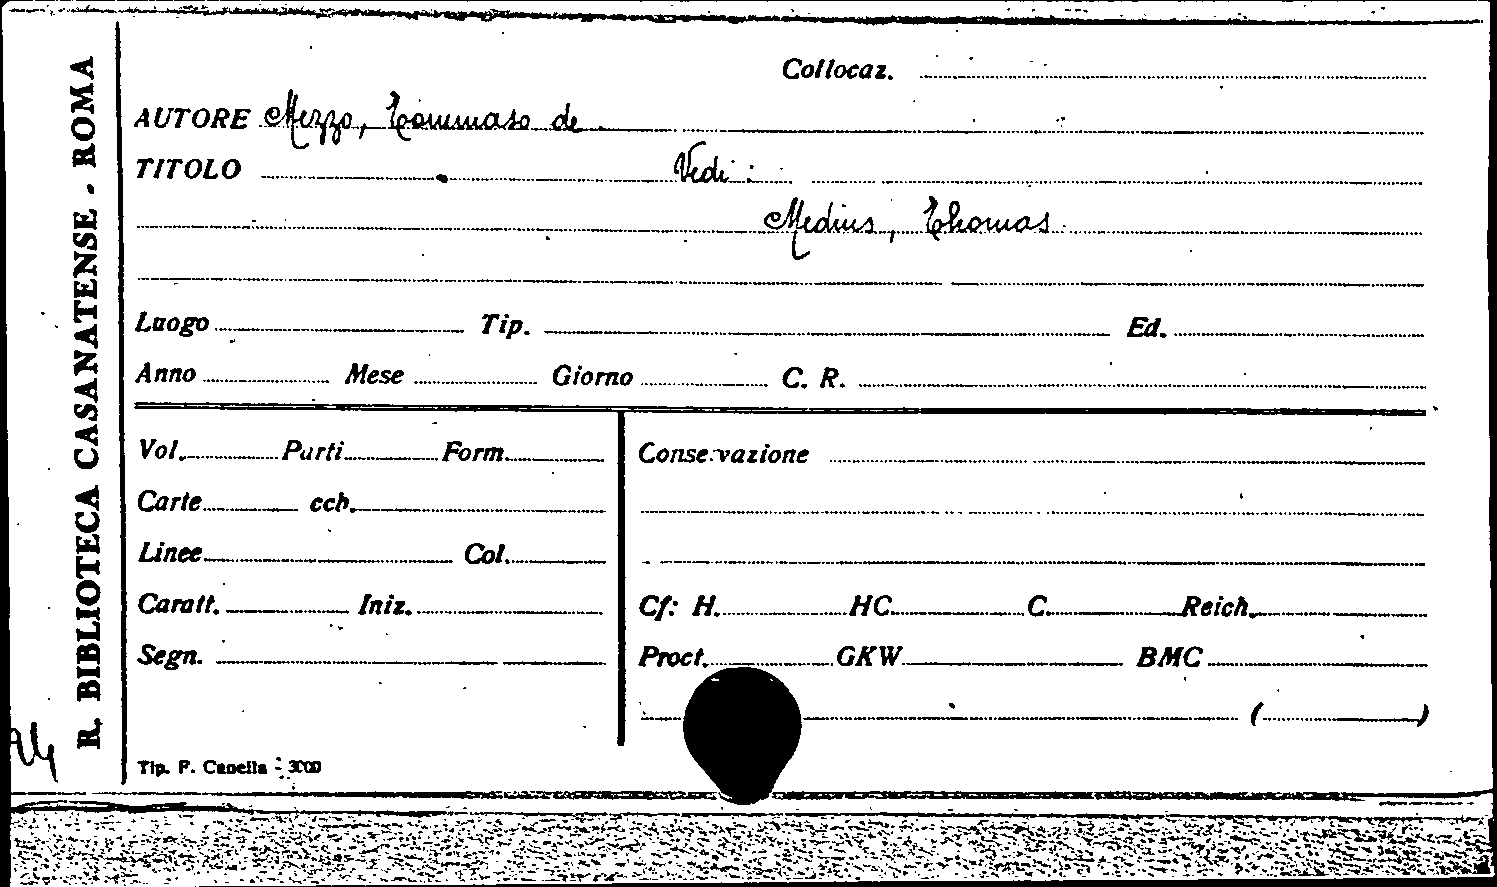 R. BIBLIOTECA CASANATENSE - ROMA
Collocaz.
AUTORE Mezzo, Tommaso de
TITOLO Vedi:
Medius, Thomas
Luogo Tip. Ed.
Anno Mese Giorno C. R.
Vol. Parti Form.
Carte cch.
Linee Col.
Caratt. Iniz.
Segn.
Conservazione
Cf: H. HC. C. Reich.
Proct. GKW BMC
( )
Tip. F. Canella - 3000